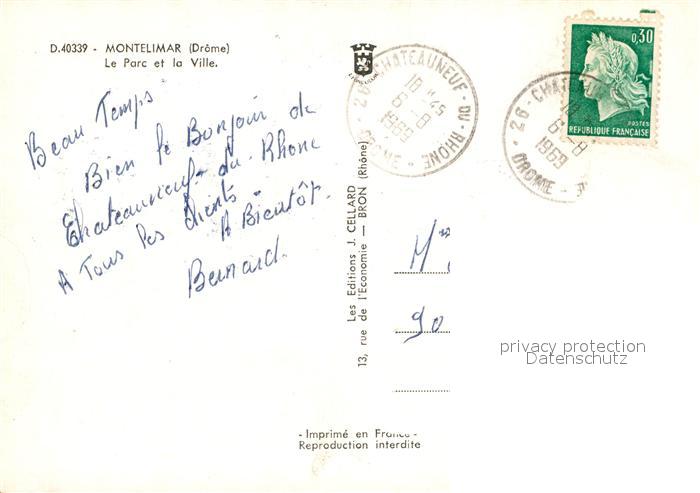 D.40339 - MONTELIMAR (Drôme)
Le Parc et la Ville.
Beau Temps
Bien le Bonjour de
Chateauneuf-du-Rhone
A Tous les clients.
A Bientôt.
Bernard.
Les Editions J. CELLARD
13, rue de l'Economie — BRON (Rhône)
26 - CHATEAUNEUF-DU-RHÔNE
18 H 45
6 - 8
1969
DRÔME
0,30
POSTES
REPUBLIQUE FRANÇAISE
26 - CHATEAU
18
6 - 8
1969
DROME -
90
privacy protection
Datenschutz
- Imprimé en France -
Reproduction interdite